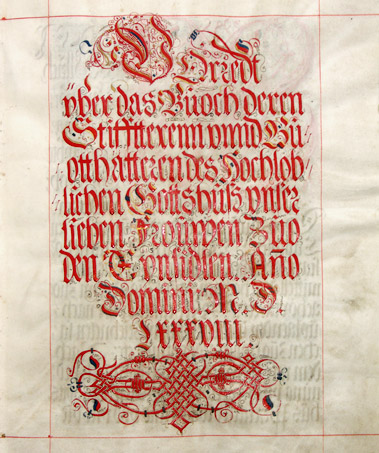 Vorredt
über das Buoch deren
Stifftteren unnd Gu-
otthatteren des Hochlob-
lichen Gottshuß unser
lieben Frouwen Zuo
den Eynsidlen. Año
Domini. M. D.
LXXXVIII.